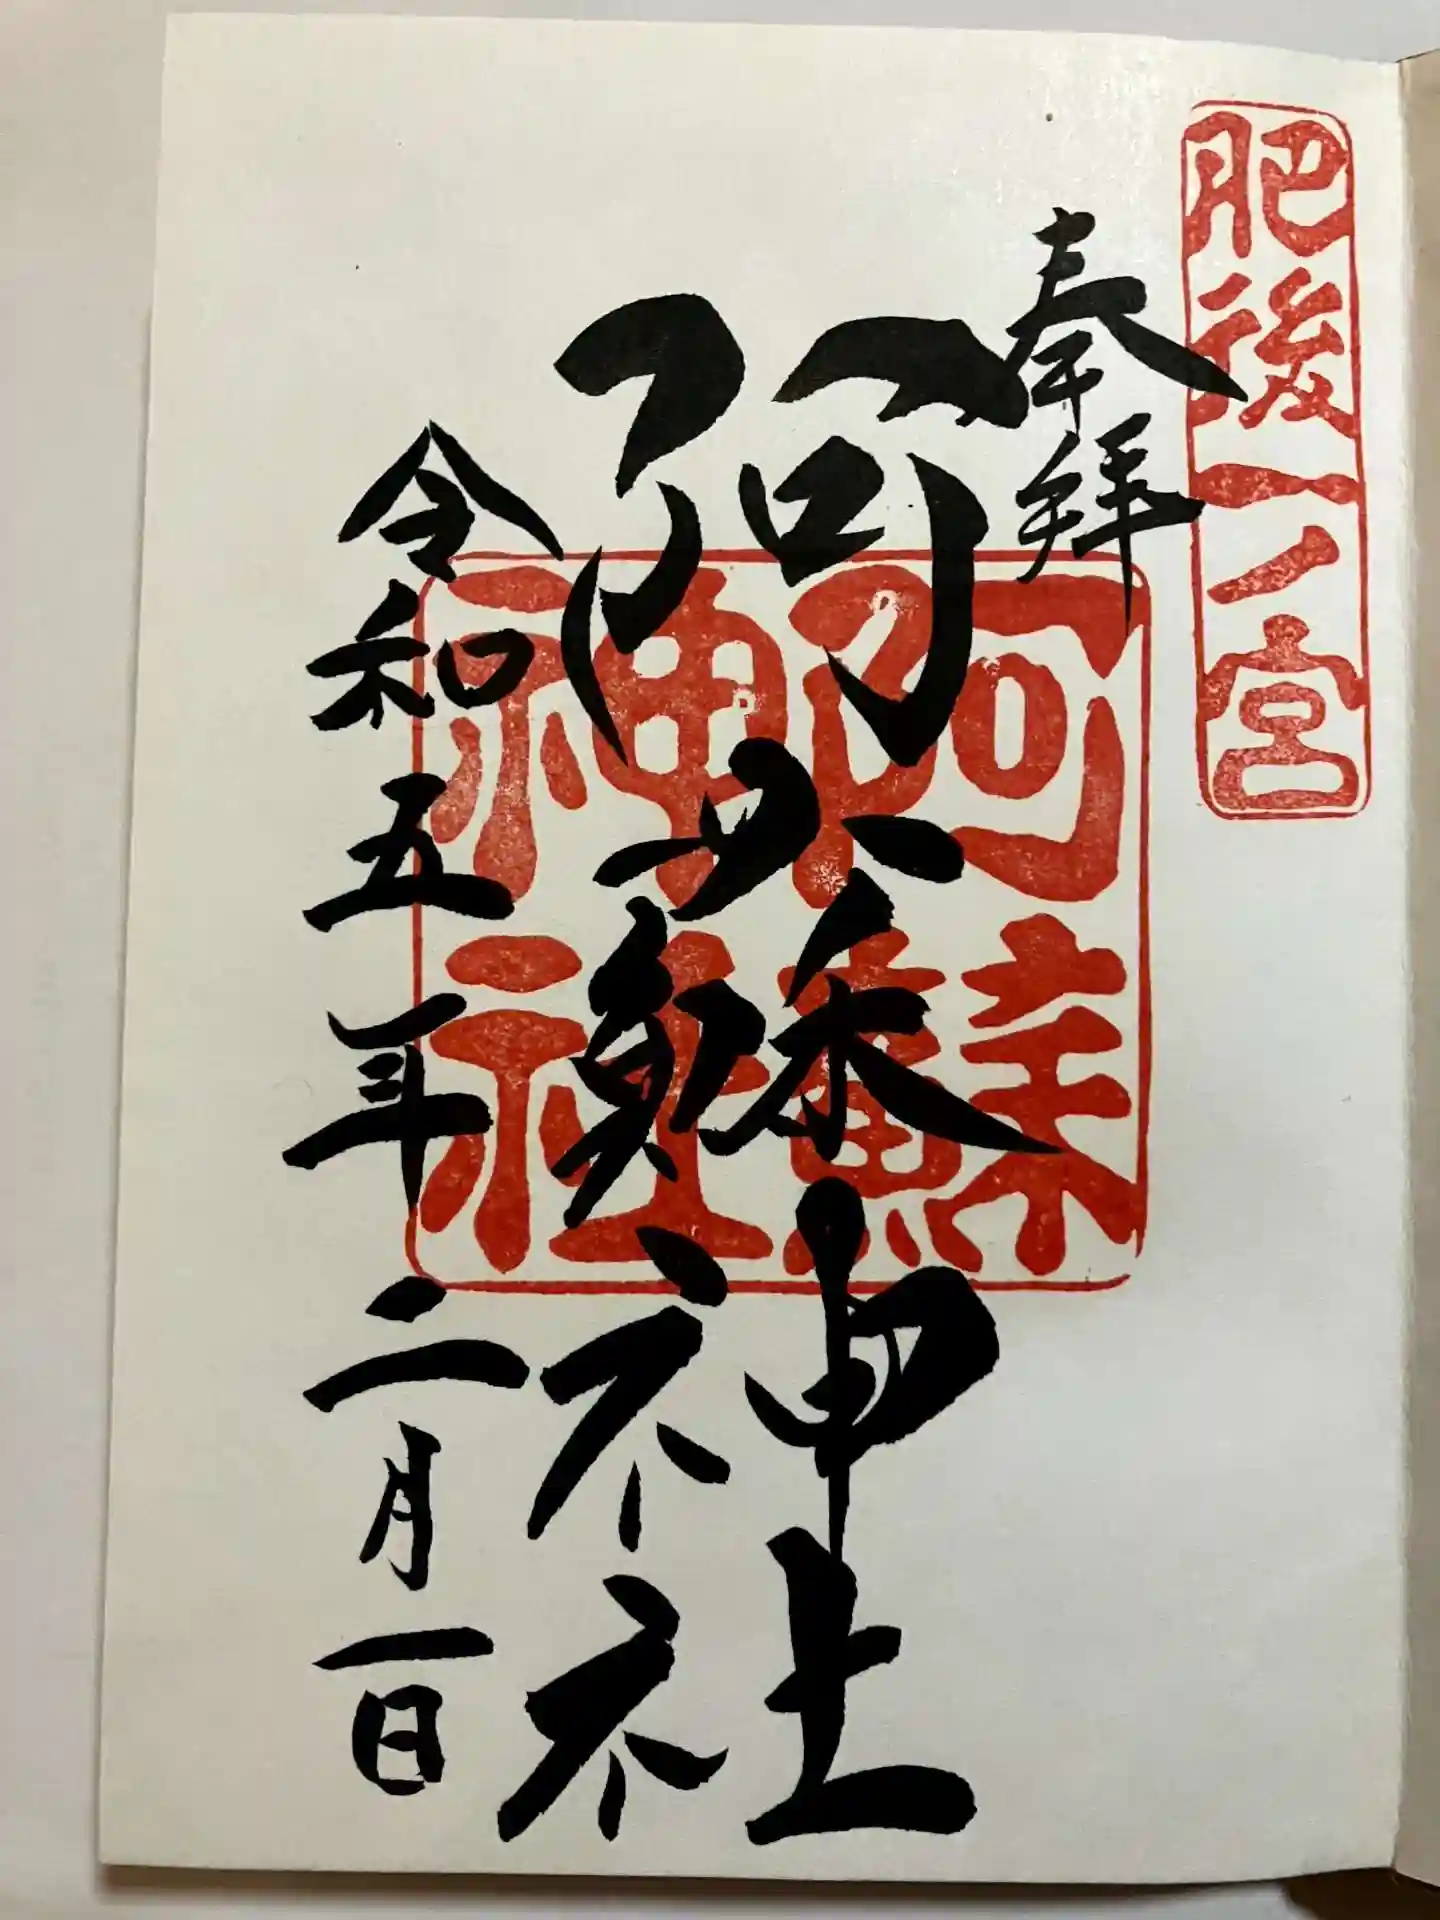 肥後一ノ宮
奉拝
阿蘇神社
阿蘇神社
令和五年二月一日